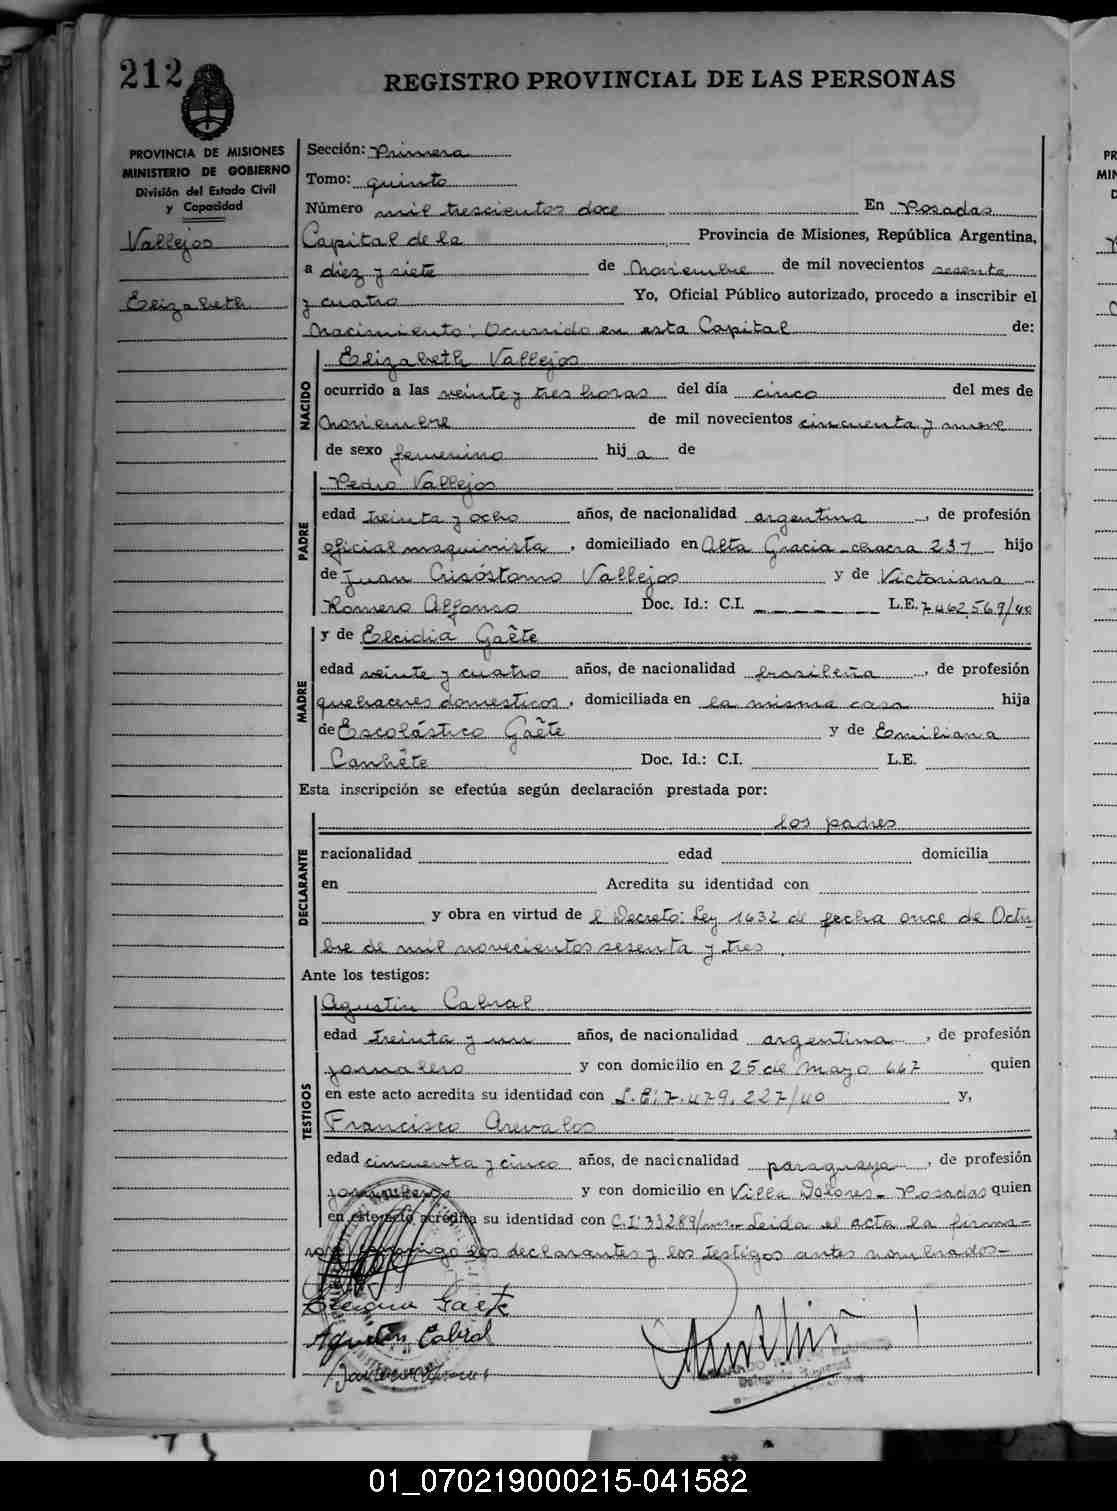 212
REGISTRO PROVINCIAL DE LAS PERSONAS
PROVINCIA DE MISIONES
MINISTERIO DE GOBIERNO
División del Estado Civil
y Capacidad
Vallejos
Elizabeth
Sección: Primera
Tomo: quinto
Número mil trescientos doce En Posadas
Capital de la Provincia de Misiones, República Argentina,
a diez y siete de Noviembre de mil novecientos sesenta
y cuatro Yo, Oficial Público autorizado, procedo a inscribir el
Nacimiento: Ocurrido en esta Capital de:
NACIDO
Elizabeth Vallejos
ocurrido a las veinte y tres horas del día cinco del mes de
Noviembre de mil novecientos cincuenta y nueve
de sexo femenino hij a de
PADRE
Pedro Vallejos
edad treinta y ocho años, de nacionalidad argentina, de profesión
oficial maquinista, domiciliado en Alta Gracia - chacra 237 hijo
de Juan Crisóstomo Vallejos y de Victoriana
Romero Alfonso Doc. Id.: C.I. — — — — — — L.E. 7462,569/40
MADRE
y de Elcidia Gaête
edad veinte y cuatro años, de nacionalidad brasileña, de profesión
quehaceres domesticos, domiciliada en la misma casa hija
de Escolástico Gaête y de Emiliana
Canhête Doc. Id.: C.I. L.E.
Esta inscripción se efectúa según declaración prestada por:
DECLARANTE
los padres
nacionalidad edad domicilia
en Acredita su identidad con
y obra en virtud de l Decreto: Ley 1632 de fecha once de Octu
bre de mil novecientos sesenta y tres.
Ante los testigos:
TESTIGOS
Agustin Cabral
edad treinta y un años, de nacionalidad argentina, de profesión
jornalero y con domicilio en 25 de Mayo 667 quien
en este acto acredita su identidad con L.E: 7.479.227/40 y,
Francisco Arevalos
edad cincuenta y cinco años, de nacionalidad paraguaya, de profesión
jornalero y con domicilio en Villa Dolores - Posadas quien
en este acto acredita su identidad con C.I: 33289/ Leida el acta la firma-
los declarantes y los testigos antes nombrados-
Gaete
Agustin Cabral
01_070219000215-041582